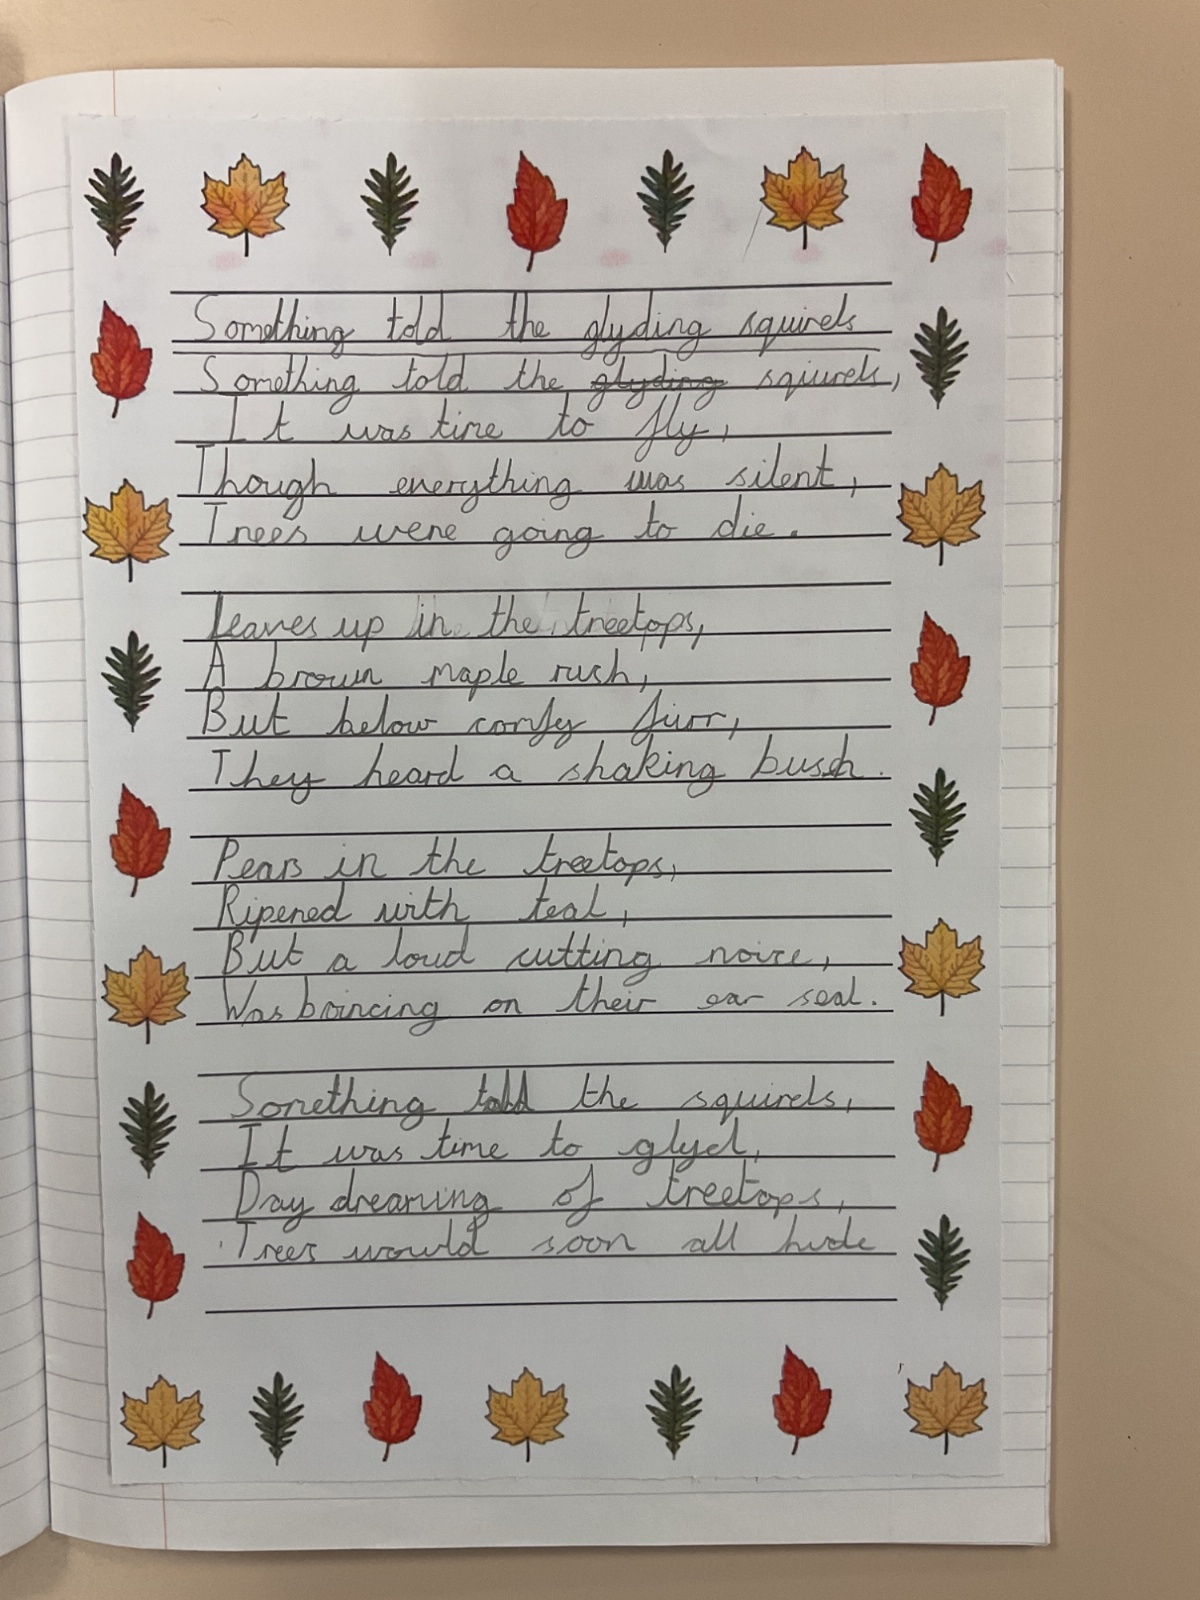 Something told the glyding squirels
Something told the glyding squurels,
It was time to fly,
Though everything was silent,
Trees were going to die.
Leaves up in the treetops,
A brown maple rush,
But below comfy furr,
They heard a shaking bush.
Pears in the treetops,
Ripened with teal,
But a loud cutting noise,
Was boincing on their ear seal.
Something told the squirels,
It was time to glyd,
Day dreaming of treetops,
Trees would soon all hide